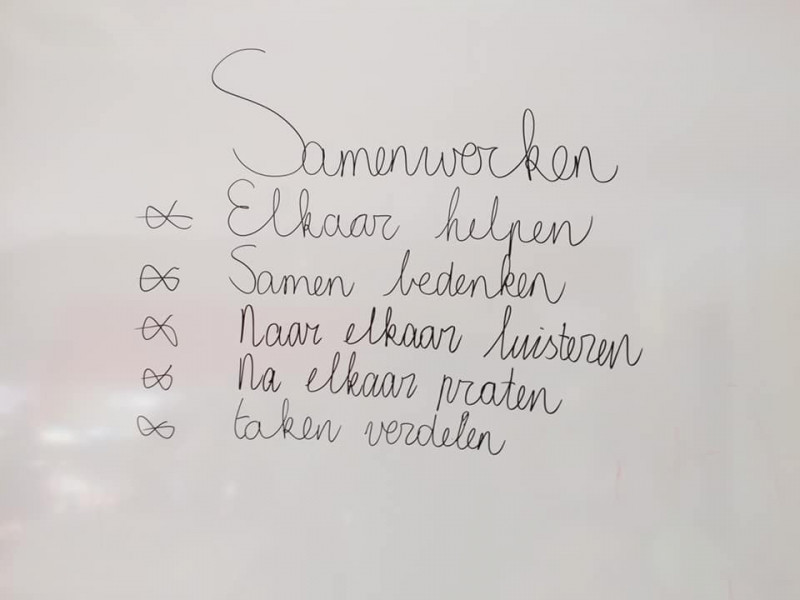 Samenwerken
* Elkaar helpen
* Samen bedenken
* Naar elkaar luisteren
* Na elkaar praten
* taken verdelen